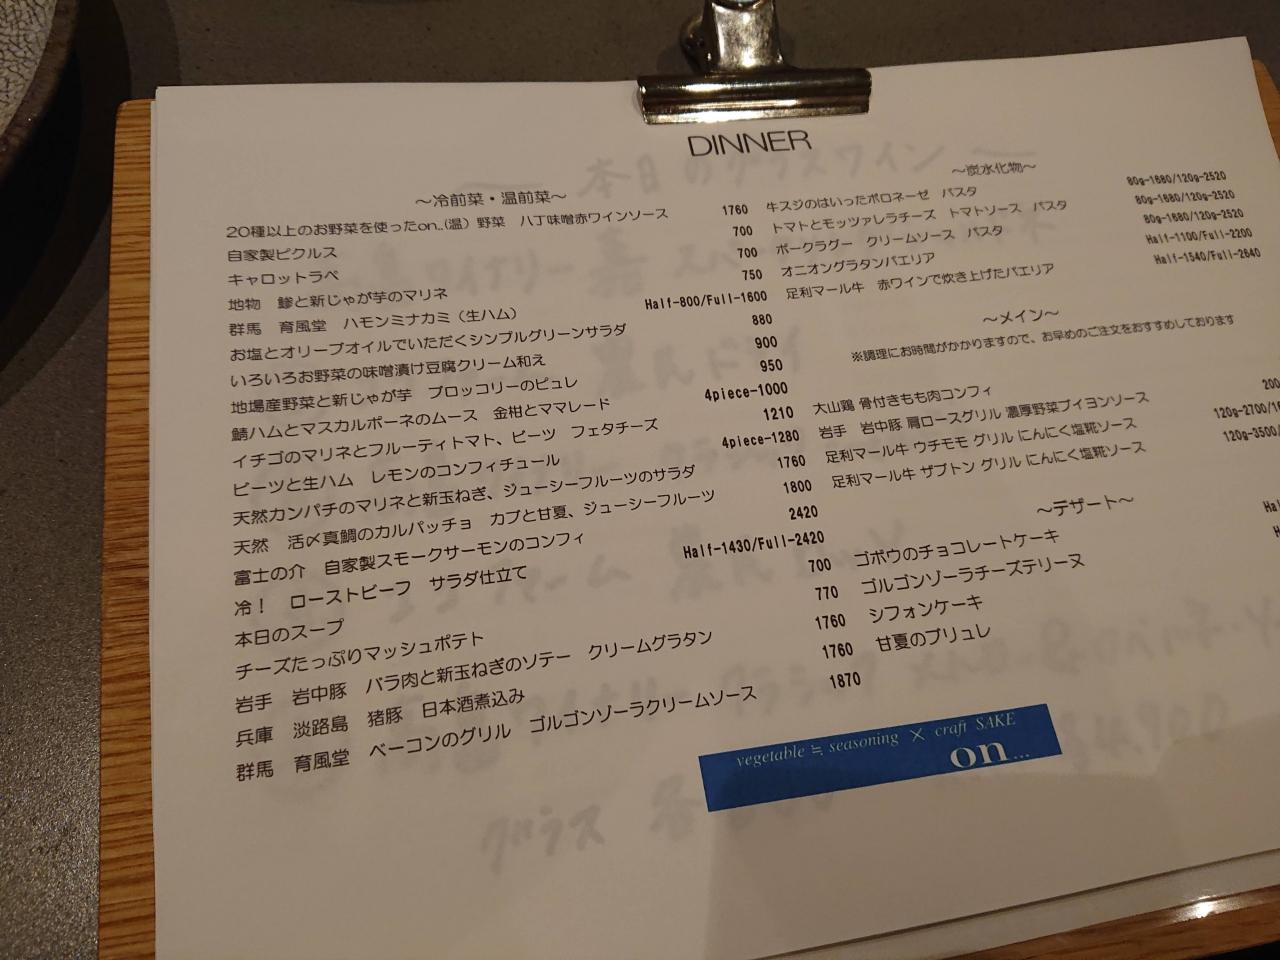 DINNER
～冷前菜・温前菜～
20種以上のお野菜を使ったon..(温）野菜　八丁味噌赤ワインソース 1760
自家製ピクルス 700
キャロットラペ 700
地物　鯵と新じゃが芋のマリネ 750
群馬　育風堂　ハモンミナカミ（生ハム） Half-800/Full-1600
お塩とオリーブオイルでいただくシンプルグリーンサラダ 880
いろいろお野菜の味噌漬け豆腐クリーム和え 900
地場産野菜と新じゃが芋　ブロッコリーのピュレ 950
鯖ハムとマスカルポーネのムース　金柑とママレード 4piece-1000
イチゴのマリネとフルーティトマト、ビーツ　フェタチーズ 1210
ビーツと生ハム　レモンのコンフィチュール 4piece-1280
天然カンパチのマリネと新玉ねぎ、ジューシーフルーツのサラダ 1760
天然　活〆真鯛のカルパッチョ　カブと甘夏、ジューシーフルーツ 1800
富士の介　自家製スモークサーモンのコンフィ 2420
冷！　ローストビーフ　サラダ仕立て Half-1430/Full-2420
本日のスープ 700
チーズたっぷりマッシュポテト 770
岩手　岩中豚　バラ肉と新玉ねぎのソテー　クリームグラタン 1760
兵庫　淡路島　猪豚　日本酒煮込み 1760
群馬　育風堂　ベーコンのグリル　ゴルゴンゾーラクリームソース 1870
～炭水化物～
牛スジのはいったボロネーゼ　パスタ 80g-1680/120g-2520
トマトとモッツァレラチーズ　トマトソース　パスタ 80g-1680/120g-2520
ポークラグー　クリームソース　パスタ 80g-1680/120g-2520
オニオングラタンパエリア Half-1100/Full-2200
足利マール牛　赤ワインで炊き上げたパエリア Half-1540/Full-2640
～メイン～
※調理にお時間がかかりますので、お早めのご注文をおすすめしております
大山鶏 骨付きもも肉コンフィ
岩手　岩中豚 肩ロースグリル 濃厚野菜ブイヨンソース 200
足利マール牛 ウチモモ グリル にんにく塩糀ソース 120g-2700/
足利マール牛 ザブトン グリル にんにく塩糀ソース 120g-3500/
～デザート～
ゴボウのチョコレートケーキ
ゴルゴンゾーラチーズテリーヌ
シフォンケーキ
甘夏のブリュレ
vegetable ≒ seasoning × craft SAKE
on...